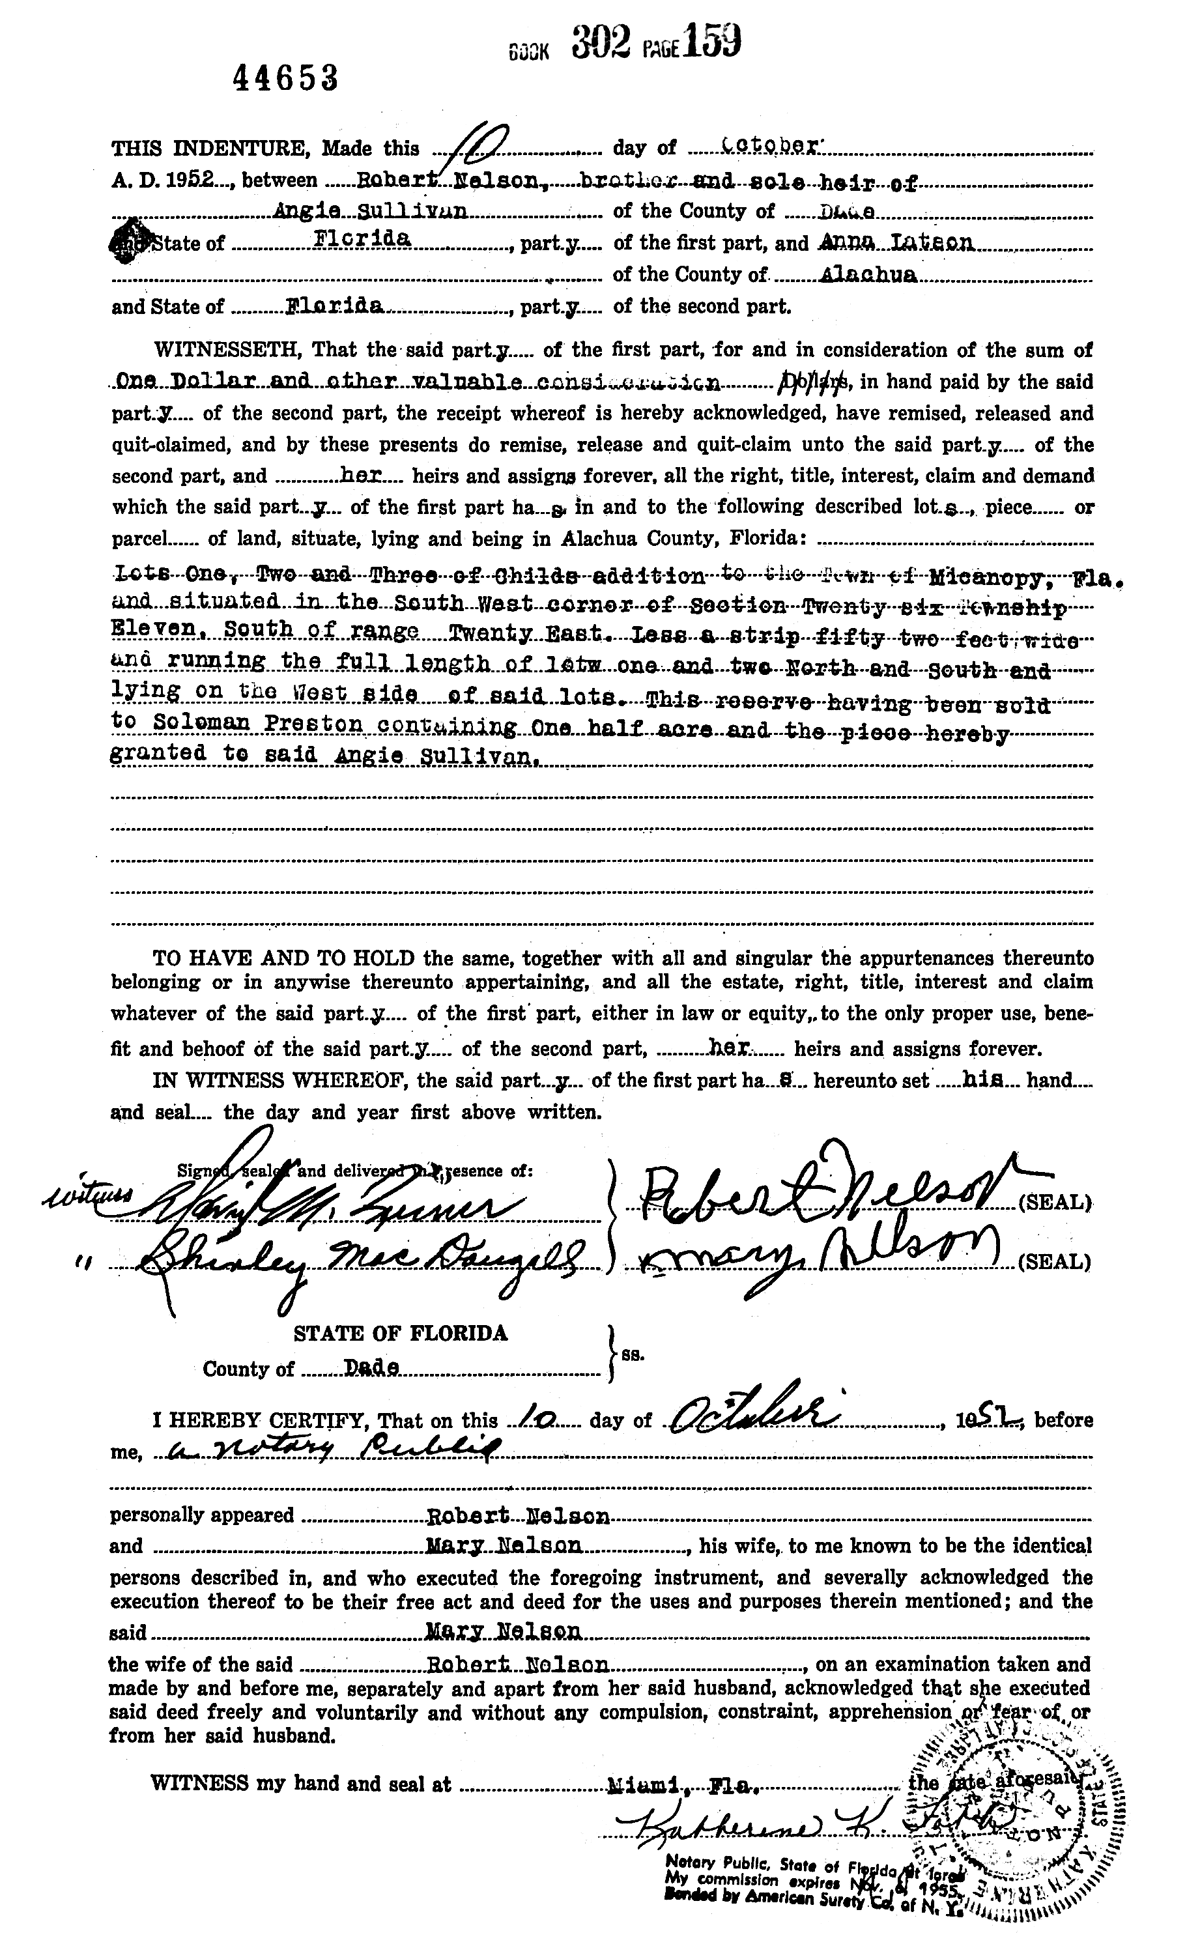 BOOK 302 PAGE 159
44653
THIS INDENTURE, Made this 10 day of October
A. D. 1952, between Robert Nelson, brother and sole heir of
Angie Sullivan of the County of Dade
and State of Florida, party of the first part, and Anna Iatson
of the County of Alachua
and State of Florida, party of the second part.
WITNESSETH, That the said party of the first part, for and in consideration of the sum of
One Dollar and other valuable consideration Dollars, in hand paid by the said
party of the second part, the receipt whereof is hereby acknowledged, have remised, released and
quit-claimed, and by these presents do remise, release and quit-claim unto the said party of the
second part, and her heirs and assigns forever, all the right, title, interest, claim and demand
which the said party of the first part has in and to the following described lots, piece or
parcel of land, situate, lying and being in Alachua County, Florida:
Lots One, Two and Three of Childs addition to the Town of Micanopy, Fla.
and situated in the South West corner of Section Twenty six Township
Eleven, South of range Twenty East. Less a strip fifty two feet wide
and running the full length of lotw one and two North and South and
lying on the West side of said lots. This reserve having been sold
to Soloman Preston containing One half acre and the piece hereby
granted to said Angie Sullivan.
TO HAVE AND TO HOLD the same, together with all and singular the appurtenances thereunto
belonging or in anywise thereunto appertaining, and all the estate, right, title, interest and claim
whatever of the said party of the first part, either in law or equity, to the only proper use, bene-
fit and behoof of the said party of the second part, her heirs and assigns forever.
IN WITNESS WHEREOF, the said party of the first part has hereunto set his hand
and seal the day and year first above written.
Signed, sealed and delivered in presence of:
witness M. Turner Robert Nelson (SEAL)
" Shirley MacDougall Mary Nelson (SEAL)
STATE OF FLORIDA
County of Dade ss.
I HEREBY CERTIFY, That on this 10 day of October, 1952, before
me, a notary Public
personally appeared Robert Nelson
and Mary Nelson, his wife, to me known to be the identical
persons described in, and who executed the foregoing instrument, and severally acknowledged the
execution thereof to be their free act and deed for the uses and purposes therein mentioned; and the
said Mary Nelson
the wife of the said Robert Nelson, on an examination taken and
made by and before me, separately and apart from her said husband, acknowledged that she executed
said deed freely and voluntarily and without any compulsion, constraint, apprehension or fear of or
from her said husband.
WITNESS my hand and seal at Miami, Fla. the date aforesaid
Katherine K.
Notary Public, State of Florida at large
My commission expires Nov. 1955.
Bonded by American Surety Co. of N. Y.